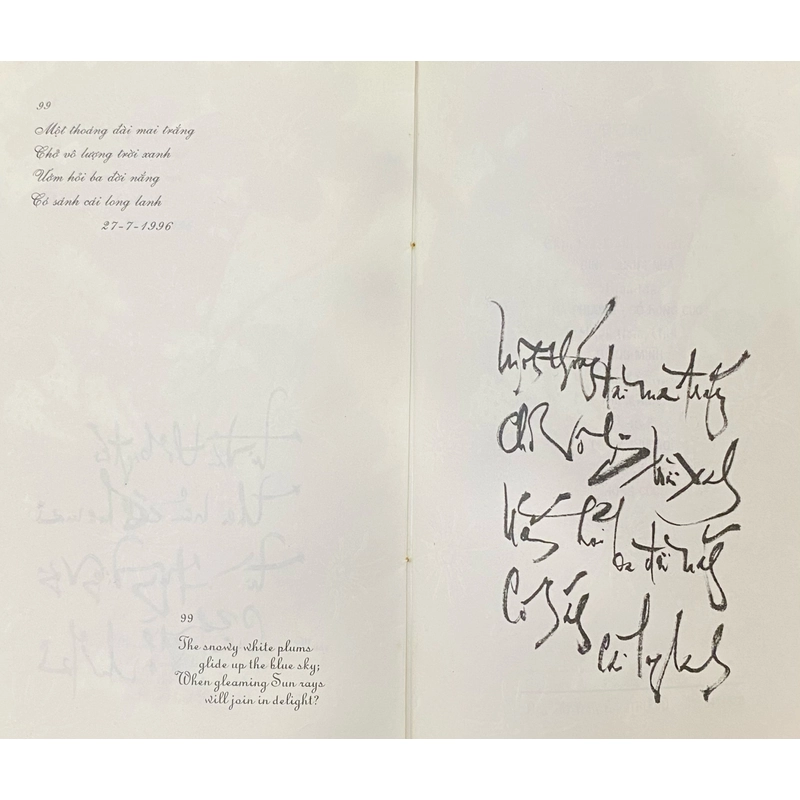 99
Một thoáng đài mai trắng
Chở vô lượng trời xanh
Ướm hỏi ba đời nắng
Có sánh cái long lanh
27-7-1996
99
The snowy white plums
glide up the blue sky;
When gleaming Sun rays
will join in delight?
Một thoáng đài mai trắng
Chở vô lượng trời xanh
Ướm hỏi ba đời nắng
Có sánh
cái long lanh